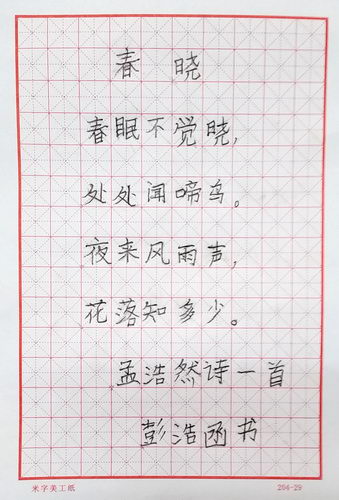 春 晓
春眠不觉晓,
处处闻啼鸟。
夜来风雨声,
花落知多少。
孟浩然诗一首
彭浩函书
米字美工纸 204-29